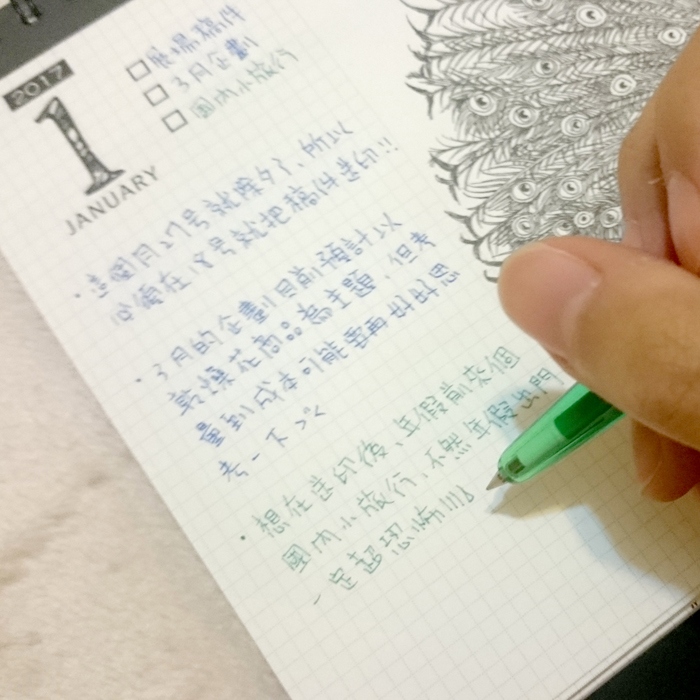 2017
1
JANUARY
□展場稿件
□3月企劃
□國內小旅行
·這個月27號就除夕了,所以
必須在18號就把稿件送印!!
·3月的企劃目前預計以
乾燥花商品為主題,但考
量到成本可能要再好好思
考一下><
·想在送印後,年假前來個
國內小旅行,不然年假出門
一定超恐怖!!!